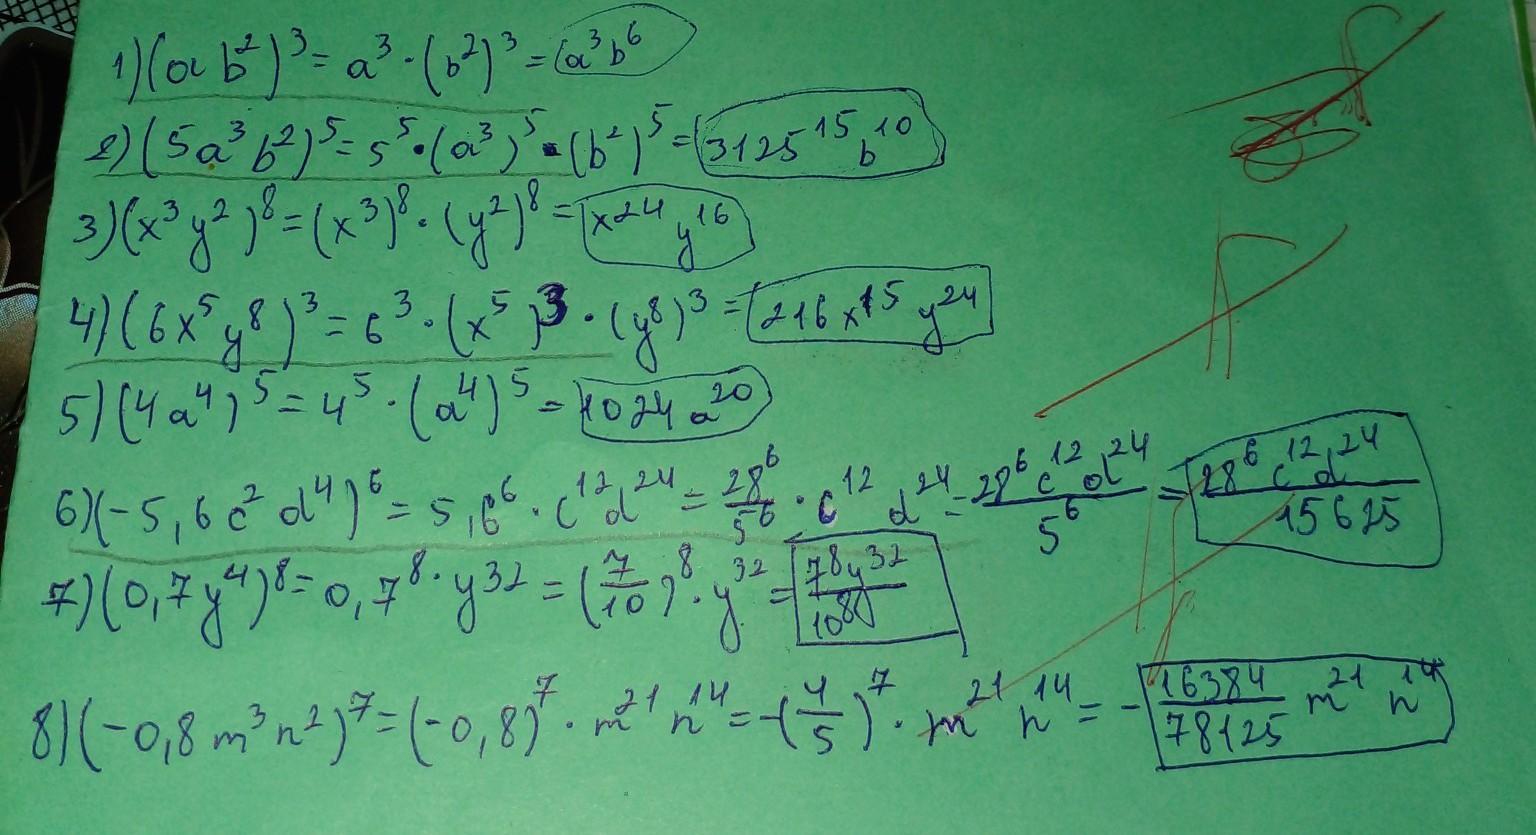 1) (ab²)³ = a³ · (b²)³ = a³b⁶
2) (5a³b²)⁵ = 5⁵ · (a³)⁵ · (b²)⁵ = 3125¹⁵b¹⁰
3) (x³y²)⁸ = (x³)⁸ · (y²)⁸ = x²⁴y¹⁶
4) (6x⁵y⁸)³ = 6³ · (x⁵)³ · (y⁸)³ = 216x¹⁵y²⁴
5) (4a⁴)⁵ = 4⁵ · (a⁴)⁵ = 1024a²⁰
6) (-5,6c²d⁴)⁶ = 5,6⁶ · c¹²d²⁴ = 28⁶/5⁶ · c¹²d²⁴ = 28⁶c¹²d²⁴/5⁶ = 28⁶c¹²d²⁴/15625
7) (0,7y⁴)⁸ = 0,7⁸ · y³² = (7/10)⁸ · y³² = 7⁸y³²/10⁸
8) (-0,8m³n²)⁷ = (-0,8)⁷ · m²¹n¹⁴ = -(4/5)⁷ · m²¹n¹⁴ = -16384/78125 m²¹n¹⁴